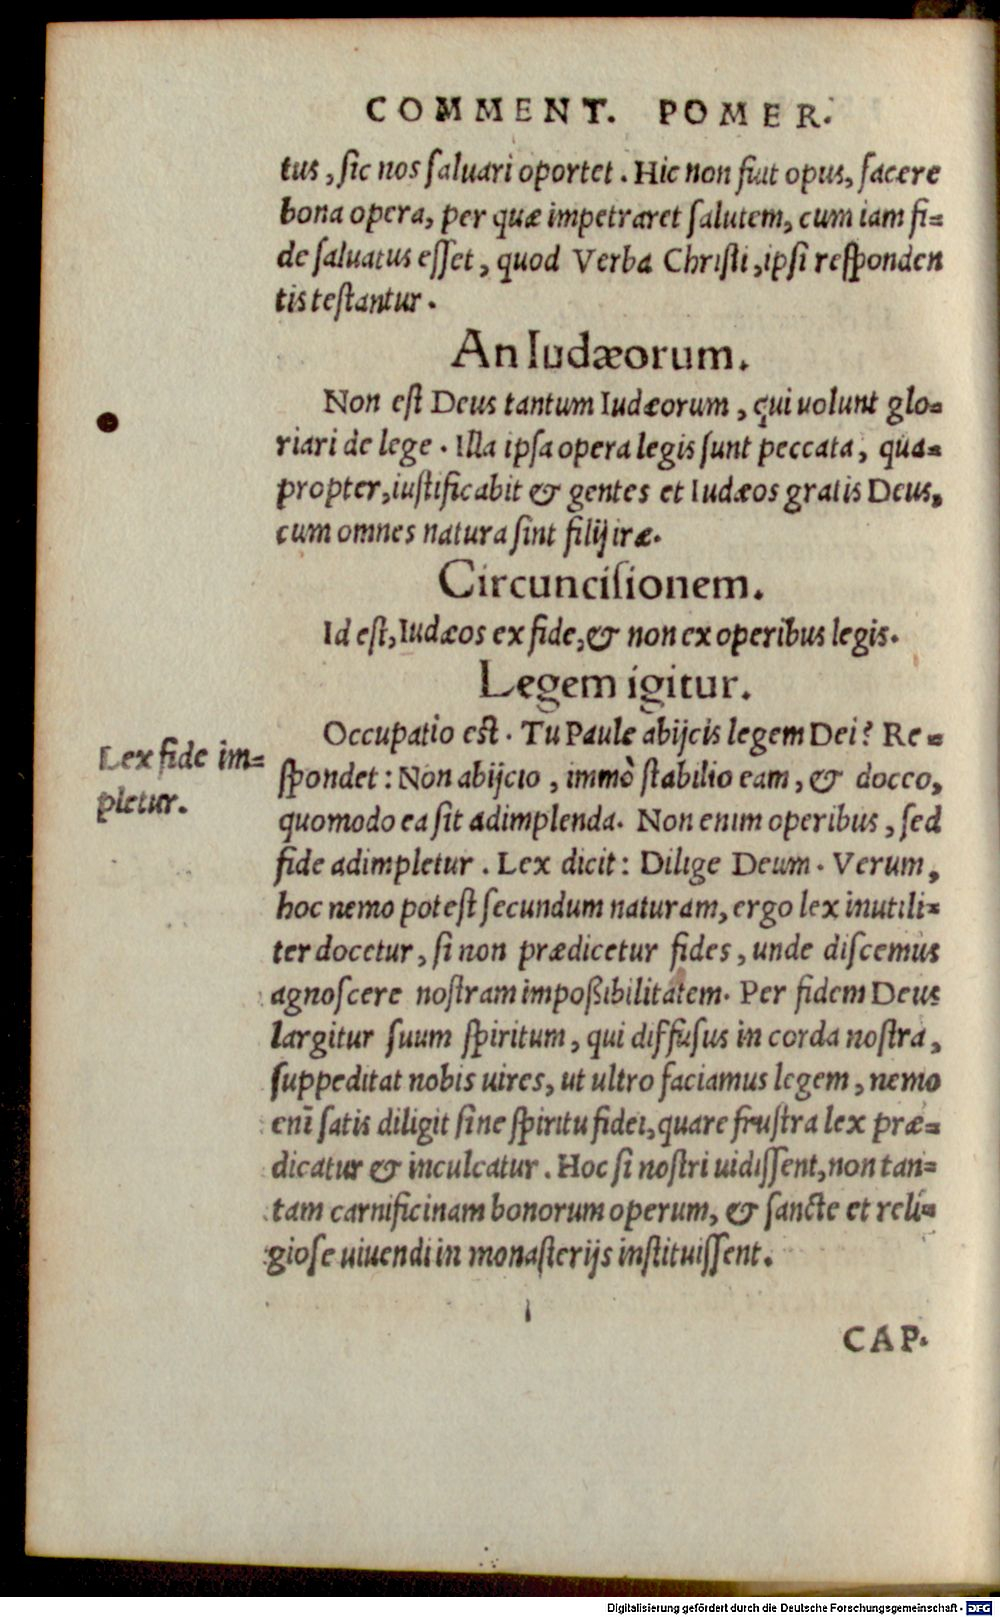 COMMENT. POMER.
tus, sic nos saluari oportet. Hic non fuit opus, facere
bona opera, per quæ impetraret salutem, cum iam fi=
de saluatus esset, quod Verba Christi, ipsi responden
tis testantur.
An Iudæorum.
Non est Deus tantum Iudæorum, qui uolunt glo=
riari de lege. Illa ipsa opera legis sunt peccata, qua=
propter, iustificabit & gentes et Iudæos gratis Deus,
cum omnes natura sint filij iræ.
Circuncisionem.
Id est, Iudæos ex fide, & non ex operibus legis.
Legem igitur.
Occupatio est. Tu Paule abijcis legem Dei? Re=
Lex fide im=
pletur.
spondet: Non abijcio, immò stabilio eam, & docco,
quomodo ea sit adimplenda. Non enim operibus, sed
fide adimpletur. Lex dicit: Dilige Deum. Verum,
hoc nemo potest secundum naturam, ergo lex inutili=
ter docetur, si non prædicetur fides, unde discemus
agnoscere nostram impoßibilitatem. Per fidem Deus
largitur suum spiritum, qui diffusus in corda nostra,
suppeditat nobis uires, ut ultro faciamus legem, nemo
enĩ satis diligit sine spiritu fidei, quare frustra lex præ=
dicatur & inculcatur. Hoc si nostri uidissent, non tan=
tam carnificinam bonorum operum, & sancte et reli=
giose uiuendi in monasterijs instituissent.
CAP.
Digitalisierung gefördert durch die Deutsche Forschungsgemeinschaft - DFG